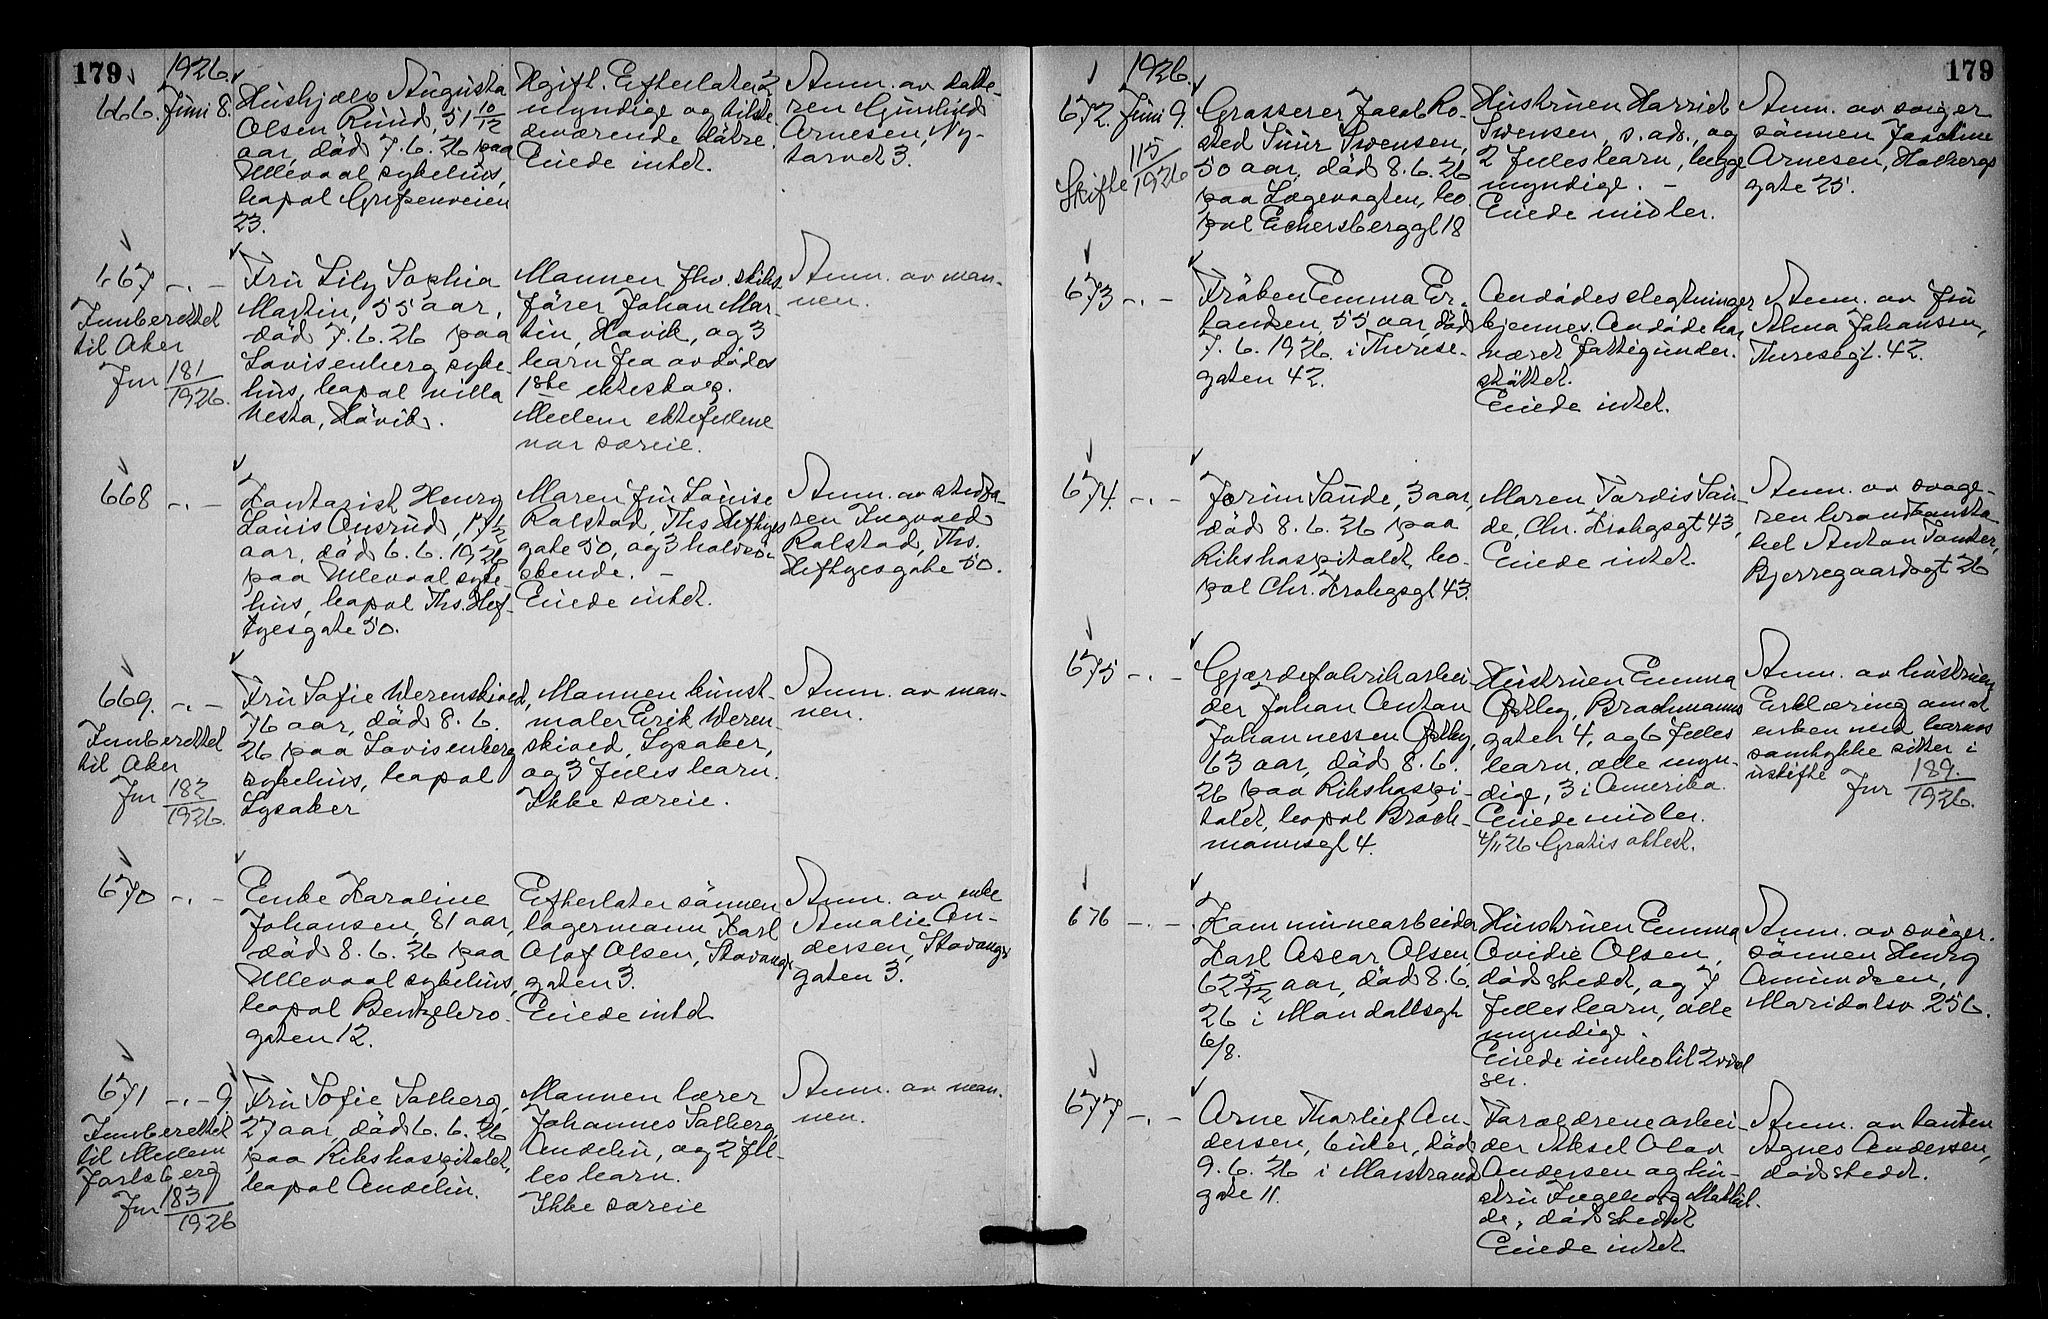 179
1926.
666. Juni 8.
Hushjelp Augusta
Olsen Ruud, 51 10/12
aar, död 7.6.26 paa
Ullevaal sykehus,
bopal
23.
Ugift. Efterlater 2
myndige og tilste-
deværende dötre.
Eiede intet.
Anm. av datte-
ren Gunhild
Arnesen, Ny-
torvet 3.
667 -.-
Innberettet
til Aker
Jnr 181/1926.
Fru Lily Sophia
Martin, 55 aar,
död 7.6.26 paa
Lovisenberg syke-
hus, bopal villa
Vesta, Hövik.
Mannen fhv. skibs-
förer Johan Mar-
tin, Hövik, og 3
barn fra avdödes
1ste ekteskap.
Mellem ektefellene
var særeie.
Anm. av man-
nen.
668 -.-
Kontorist Henry
Louis Onsrud, 17 1/2
aar, död 6.6.1926
paa Ullevaal syke-
hus, bopal Ths. Hef-
tyesgate 50.
Moren fru Louise
Rolstad, Ths Heftyes
gate 50, og 3 halvsö-
skende. -
Eiede intet.
Anm. av stedfa-
ren Ingvald
Rolstad, Ths.
Heftyesgate 50.
669. -.-
Innberettet
til Aker
Jnr 182/1926.
Fru Sofie Werenskiold,
76 aar, död 8.6.
26 paa Lovisenberg
sykehus, bopal
Lysaker
Mannen kunst-
maler Erik Weren
skiold, Lysaker,
og 3 felles barn.
Ikke særeie.
Anm. av man-
nen.
670 -.-
Enke Karoline
Johansen, 81 aar,
död 8.6.26 paa
Ullevaal sykehus,
bopal Bentzebro
gaten 12.
Efterlater sönnen
lagermann Karl
Olaf Olsen, Stavangr
gaten 3.
Eiede intet
Anm. av enke
Amalie An-
dersen, Stavangr
gaten 3.
671 -.- 9.
Innberettet
til Mellem
Jarlsberg
Jnr 183/1926
Fru Sofie Solberg,
27 aar, död 6.6.26
paa Rikshospitalet,
bopal Andebu.
Mannen lærer
Johannes Solberg
Andebu, og 2 fel-
les barn.
Ikke særeie
Anm. av man-
nen.
179
1926.
672. Juni 9.
Skifte 115/1926
Grosserer Jacob Ro-
sted Suur Svensen,
50 aar, död 8.6.26
paa Lægevagten, bo
pal Eckersberggt 18
Hustruen Harriet
Svensen, s. ad., og
2 felles barn, begge
myndige. -
Eiede midler.
Anm. av sviger
sönnen Joachim
Arnesen, Holbergs
gate 25.
673 -.-
Fröken Emma Er-
landsen, 55 aar, död
7.6.1926. i Therese-
gaten 42.
Avdödes slegtninger
kjennes. Avdöde har
været fattigunder-
støttet.
Eiede intet.
Anm. av fru
Alma Johansen,
Theresegt. 42.
674. -.-
Jorun Saude, 3 aar,
död 8.6.26 paa
Rikshospitalet, bo
pal Chr. Krohgsgt 43.
Moren Tordis Sau-
de, Chr. Krohgsgt 43,
Eiede intet.
Anm. av svoge-
ren brandkonsta-
bel Anton
Bjerregaardsgt 26
675 -.-
Gjærdefabrikarbei
der Johan Anton
Johannessen Østby,
63 aar, död 8.6.
26 paa Rikshospi-
talet, bopal Broch-
mannsgt 4.
Hustruen Emma
Østby, Brochmanns
gaten 4, og 6 felles
barn. alle myn-
dige, 3 i Amerika.
Eiede midler.
4/11 26 Gratis attest.
Anm. av hustruen
Erklæring om at
enken med barnas
samtykke sitter i
uskifte Jnr 189./1926.
676 -.-
Kommunearbeider
Karl Oscar Olsen,
62 5/12 aar, död 8.6.
26 i Mandallsgt
6/8.
Hustruen Emma
Ovidie Olsen,
död stedet, og 7
felles barn, alle
myndige.
Eiede innbo til 2 værel
ser.
Anm. av sviger.
sönnen Henry
Amundsen,
Maridalsv. 256.
677 -.-
Arne Thorleif An-
dersen, 6 uker, död
9.6.26 i Marstrand
gate 11.
Foreldrene arbei-
der Aksel Olav
Andersen og hu-
stru Ingeborg Mathil-
de, död stedet
Eiede intet
Anm. av tanten
Agnes Andersen,
död stedet.